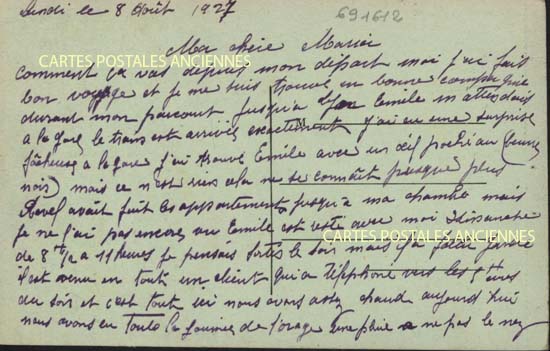 Lundi le 8 Août 1927
691612
CARTES POSTALES ANCIENNES
Ma chère Maria
comment ça vas depuis mon départ moi j'ai fait
bon voyage et je me suis trouvé en bonne compagnie
durant mon parcourt. Jusqu'à Lyon Emile m'attendais
a la gare le train est arrivés exactement j'ai eu une surprise
fâcheuse a la gare j'ai trouvé Emile avec un œil poché au beurre
noir) mais ce n'est rien cela ne se connaît presque plus
Revel avait fait les appartements jusqu'à ma chambre mais
je ne l'ai pas encore vu Emile est resté avec moi Dimanche
CARTES POSTALES ANCIENNES
de 8 1/2 a 11 heures je pensais sortir le soir mais il a fallu
il est venu en tout un client qui a téléphoné vers les heures
du soir et c'est tout ici nous avons assez chaud aujourd'hui
nous avons eu toute la journée de l'orage pluie a ne pas le nez